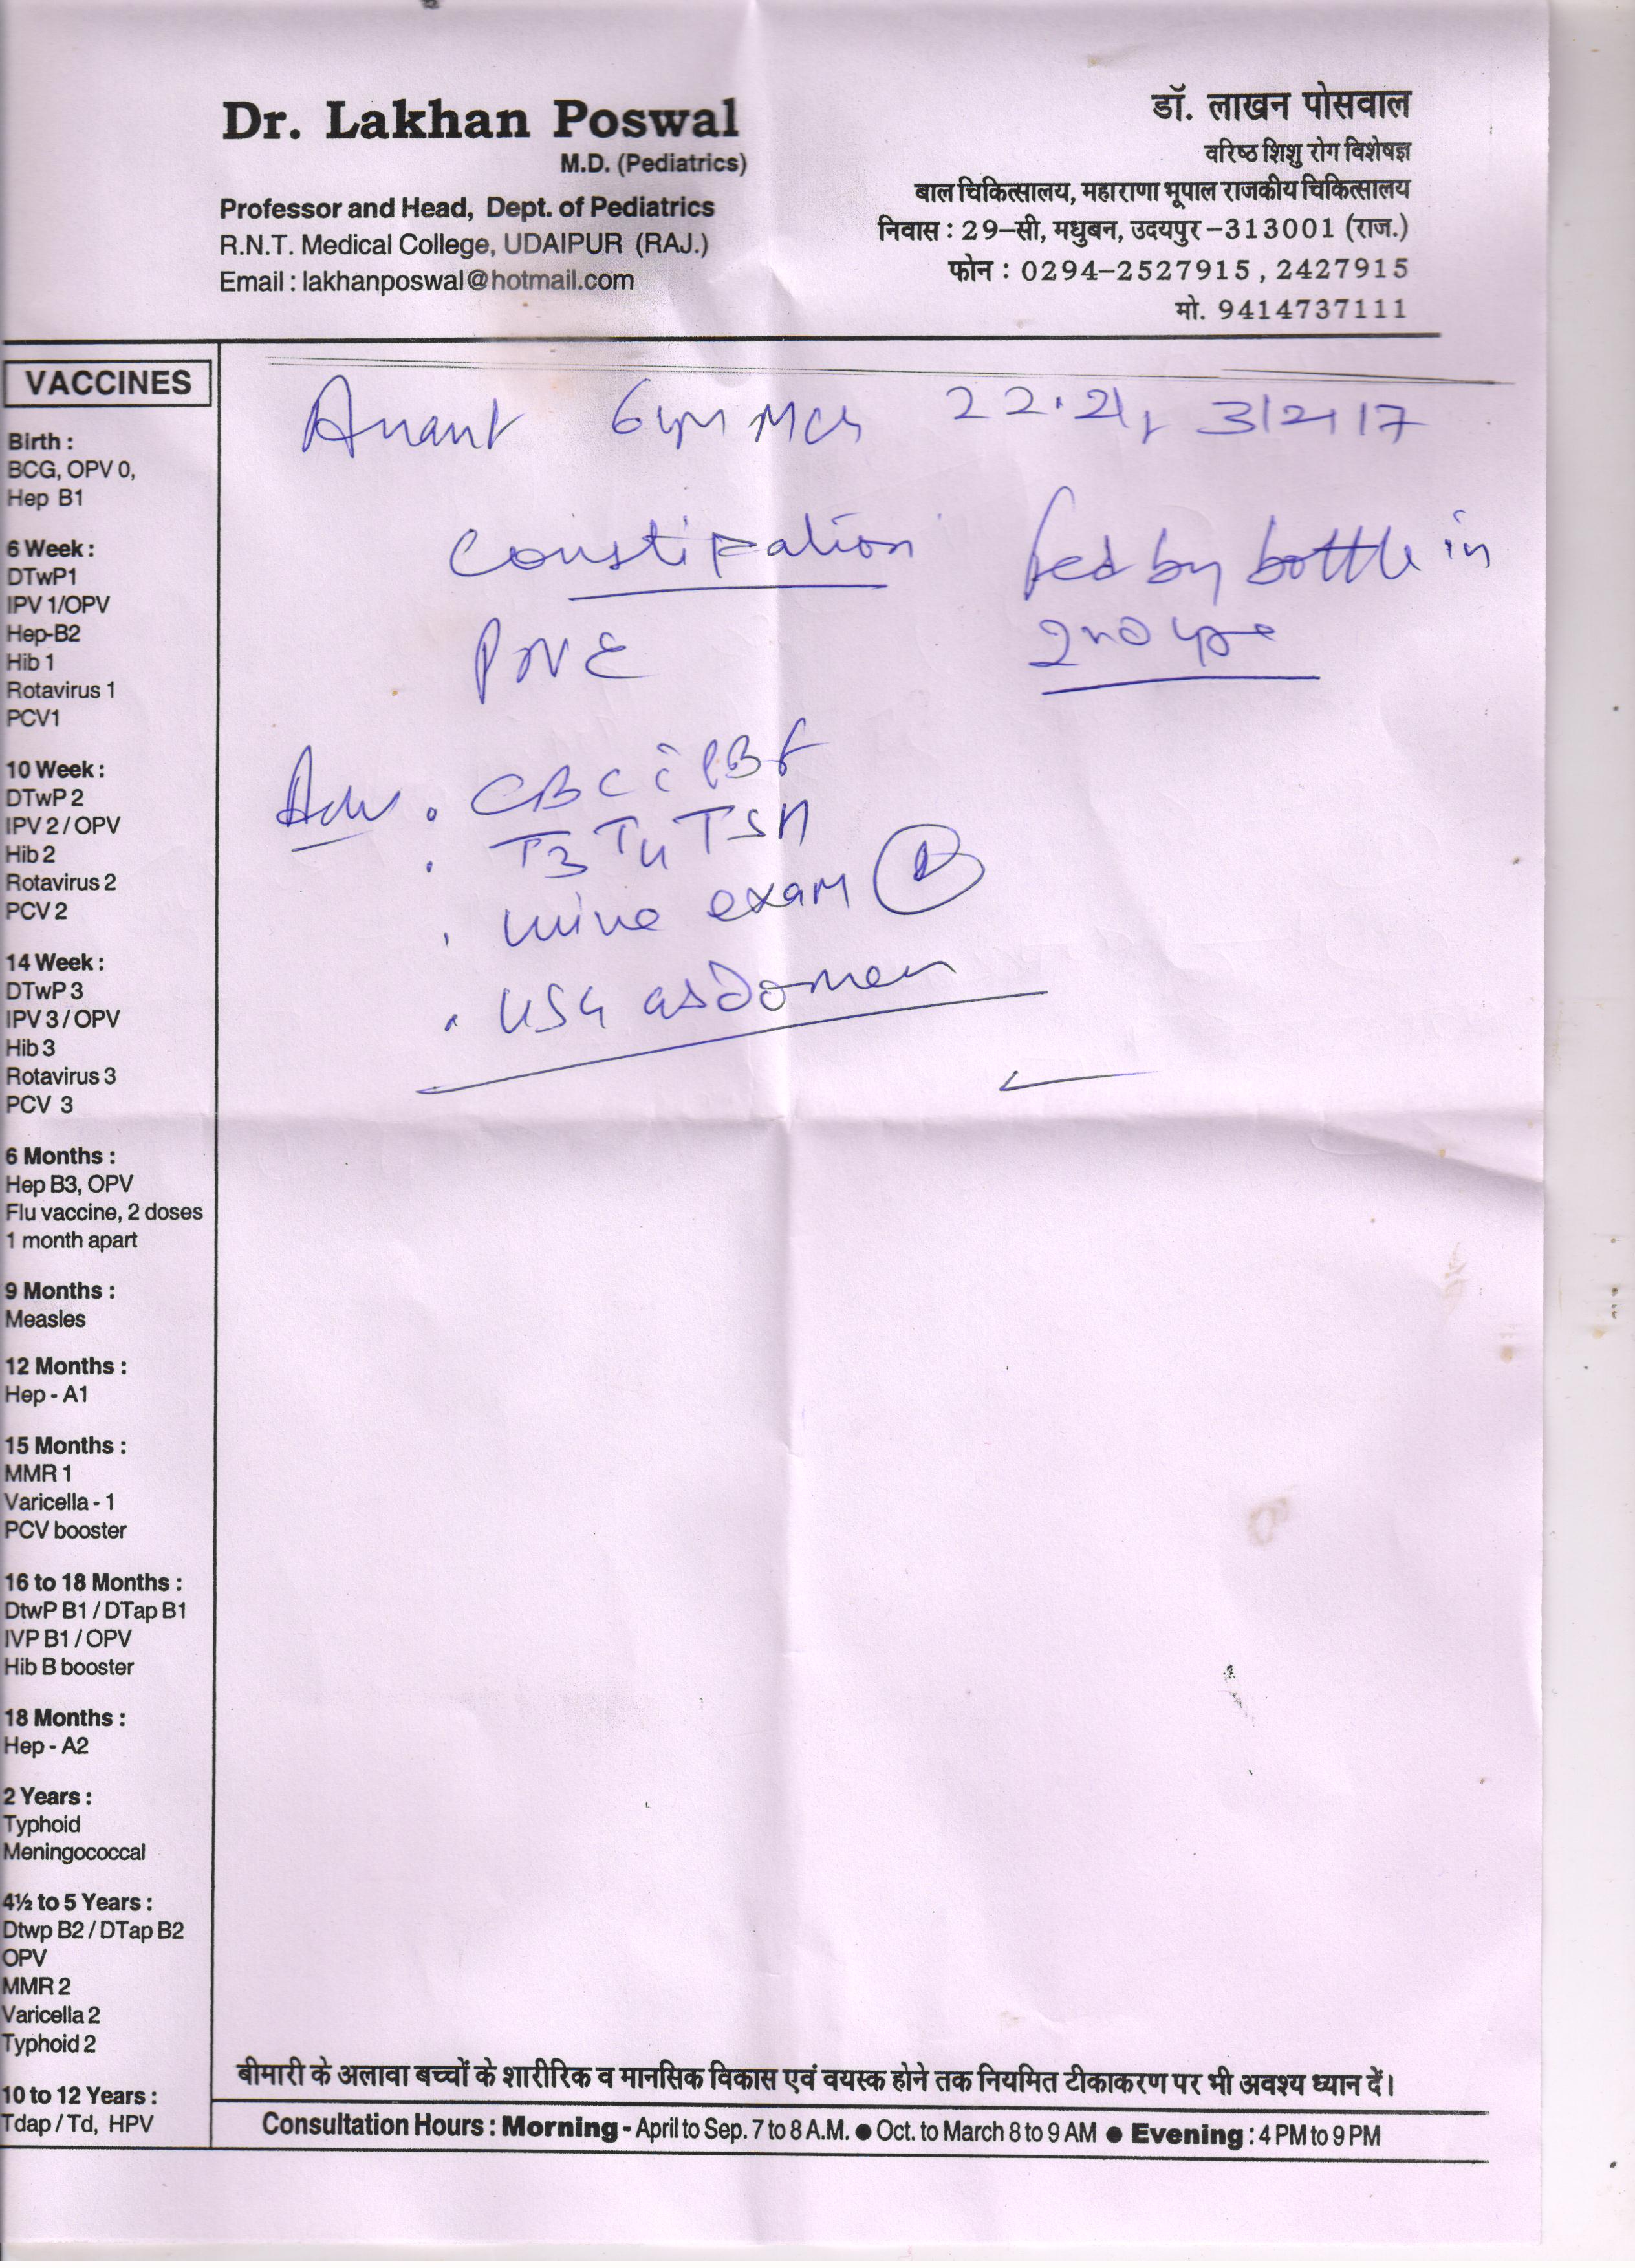 Dr. Lakhan Poswal
M.D. (Pediatrics)
Professor and Head, Dept. of Pediatrics
R.N.T. Medical College, UDAIPUR (RAJ.)
Email : lakhanposwal@hotmail.com
डॉ. लाखन पोसवाल
वरिष्ठ शिशु रोग विशेषज्ञ
बाल चिकित्सालय, महाराणा भूपाल राजकीय चिकित्सालय
निवास : 29-सी, मधुबन, उदयपुर-313001 (राज.)
फोन : 0294-2527915, 2427915
मो. 9414737111
VACCINES
Birth :
BCG, OPV 0,
Hep B1
6 Week :
DTwP1
IPV 1/OPV
Hep-B2
Hib 1
Rotavirus 1
PCV1
10 Week :
DTwP 2
IPV 2 / OPV
Hib 2
Rotavirus 2
PCV 2
14 Week :
DTwP 3
IPV 3 / OPV
Hib 3
Rotavirus 3
PCV 3
6 Months :
Hep B3, OPV
Flu vaccine, 2 doses
1 month apart
9 Months :
Measles
12 Months :
Hep - A1
15 Months :
MMR 1
Varicella - 1
PCV booster
16 to 18 Months :
DtwP B1 / DTap B1
IVP B1 / OPV
Hib B booster
18 Months :
Hep - A2
2 Years :
Typhoid
Meningococcal
4½ to 5 Years :
Dtwp B2 / DTap B2
OPV
MMR 2
Varicella 2
Typhoid 2
10 to 12 Years :
Tdap / Td, HPV
Anant 3/2/17
Constipation fed by bottle in
PNE 2nd
Adv . CBC c̄ PBF
. T3 T4 TSH
. urine exam (R)
. USG abdomen
बीमारी के अलावा बच्चों के शारीरिक व मानसिक विकास एवं वयस्क होने तक नियमित टीकाकरण पर भी अवश्य ध्यान दें।
Consultation Hours : Morning - April to Sep. 7 to 8 A.M. ● Oct. to March 8 to 9 AM ● Evening : 4 PM to 9 PM